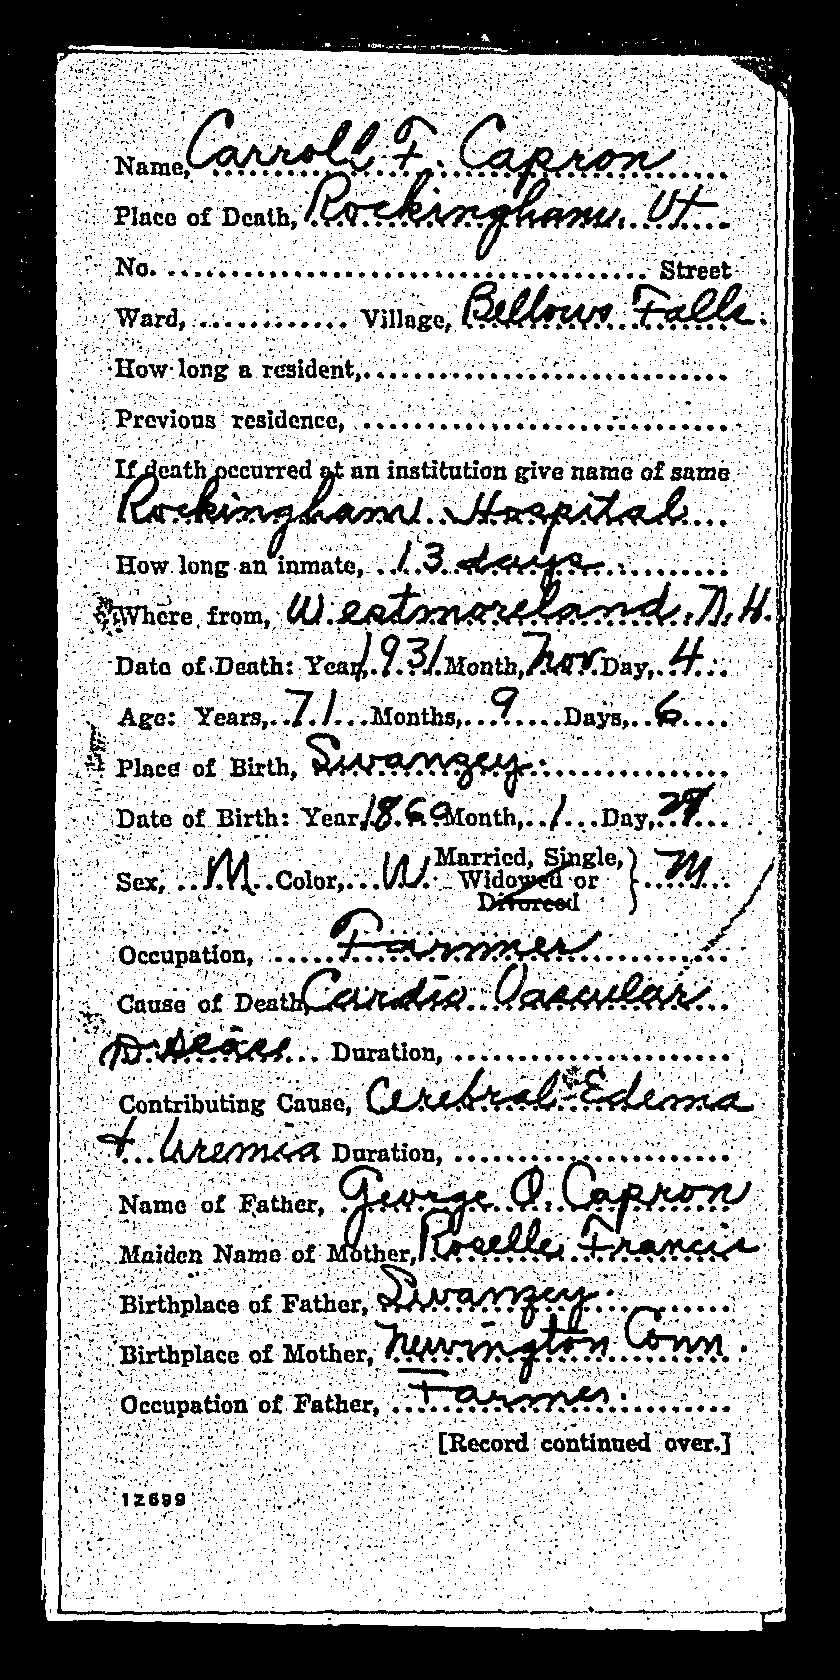 Name, Carroll F. Capron
Place of Death, Rockingham Vt
No. Street
Ward, Village, Bellows Falls.
How long a resident,
Previous residence,
If death occurred at an institution give name of same
Rockingham Hospital
How long an inmate, 13 days
Where from, Westmoreland, N.H.
Date of Death: Year, 1931 Month, Nov Day, 4
Age: Years, 71 Months, 9 Days, 6
Place of Birth, Swanzey
Date of Birth: Year, 1860 Month, 1 Day, 29
Sex, M Color, W Married, Single, Widowed or Divorced } M
Occupation, Farmer
Cause of Death, Cardio Vascular
Disease Duration,
Contributing Cause, Cerebral Edema
+ Uremia Duration,
Name of Father, George O. Capron
Maiden Name of Mother, Roselle Francis
Birthplace of Father, Swanzey
Birthplace of Mother, Newington Conn.
Occupation of Father, Farmer
[Record continued over.]
12699